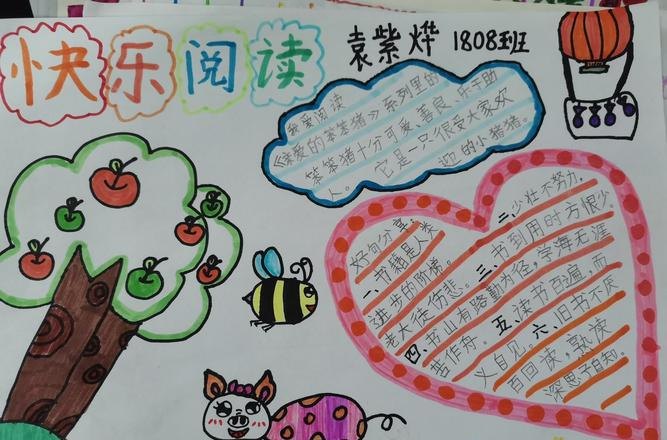 快乐阅读
袁紫烨 1808班
我爱阅读
《亲爱的笨笨猪》系列里的
笨笨猪十分可爱、善良、乐于助
人。它是一只很受大家欢
迎的小猪猪。
好句分享:
一、书籍是人类
进步的阶梯。
二、少壮不努力,
老大徒伤悲。
三、书到用时方恨少。
四、书山有路勤为径,学海无涯
苦作舟。五、读书百遍,而
义自见。六、旧书不厌
百回读,熟读
深思子自知。